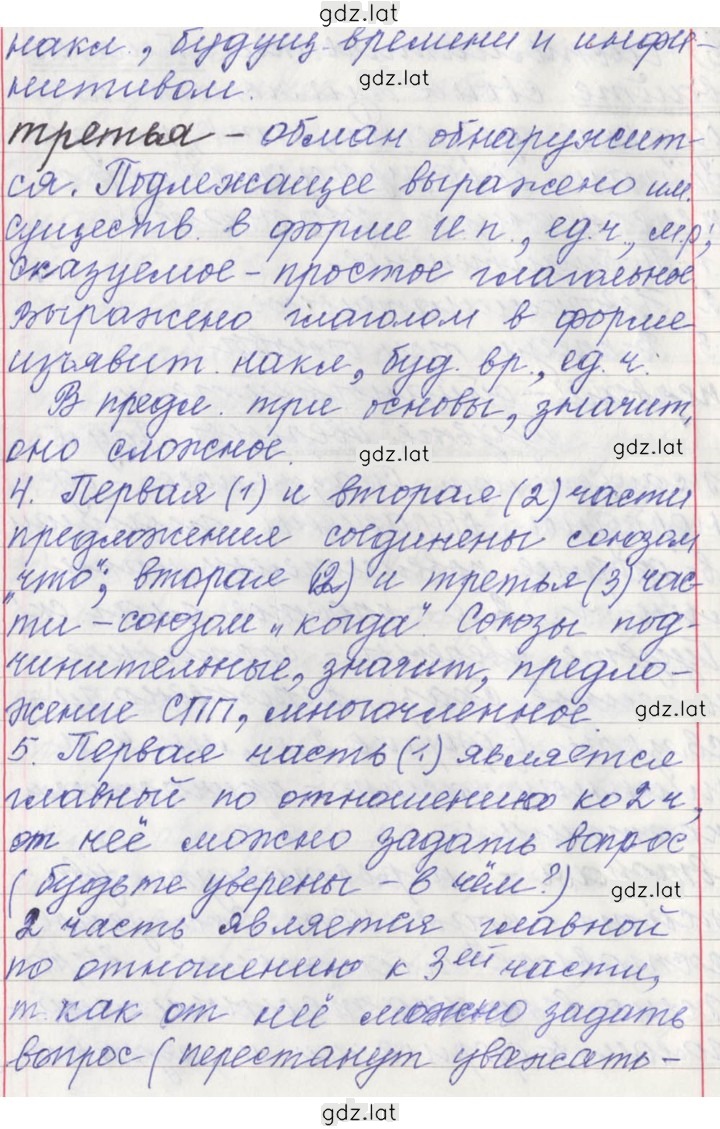 gdz.lat
накл., будущ. времени и инфи-
gdz.lat
нитивом.
третья – обман обнаружит-
ся. Подлежащее выражено им.
существ. в форме И.п., ед.ч., м.р.;
сказуемое – простое глагольное
выражено глаголом в форме
изъявит. накл., буд. вр., ед. ч.
В предл. три основы, значит,
оно сложное.
gdz.lat
gdz.lat
4. Первая (1) и вторая (2) части
предложения соединены союзом
„что“; вторая (2) и третья (3) час-
ти – союзом „когда“. Союзы под-
чинительные, значит, предло-
жение СПП, многочленное
gdz.lat
5. Первая часть (1) является
главной по отношению ко 2 ч,
от неё можно задать вопрос
(будьте уверены – в чём?)
gdz.lat
2 часть является главной
по отношению к 3ей части,
т.как от неё можно задать
вопрос (перестанут уважать –
gdz.lat